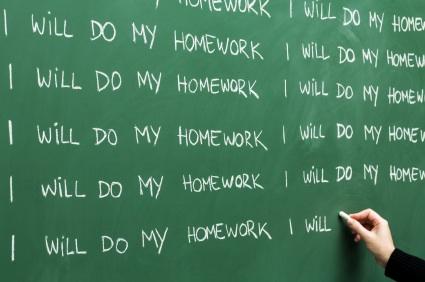 HOMEWORK I WiLL DO MY HOMEW
I WiLL DO MY HOMEWORK I WiLL DO MY HOMEW
I WiLL DO MY HOMEWORK I WiLL DO MY HOMEW
I WiLL DO MY HOMEWORK I WiLL DO MY HOMEW
I WiLL DO MY HOMEWORK I WiLL DO MY HOMEW
I WiLL DO MY HOMEWORK I WiLL